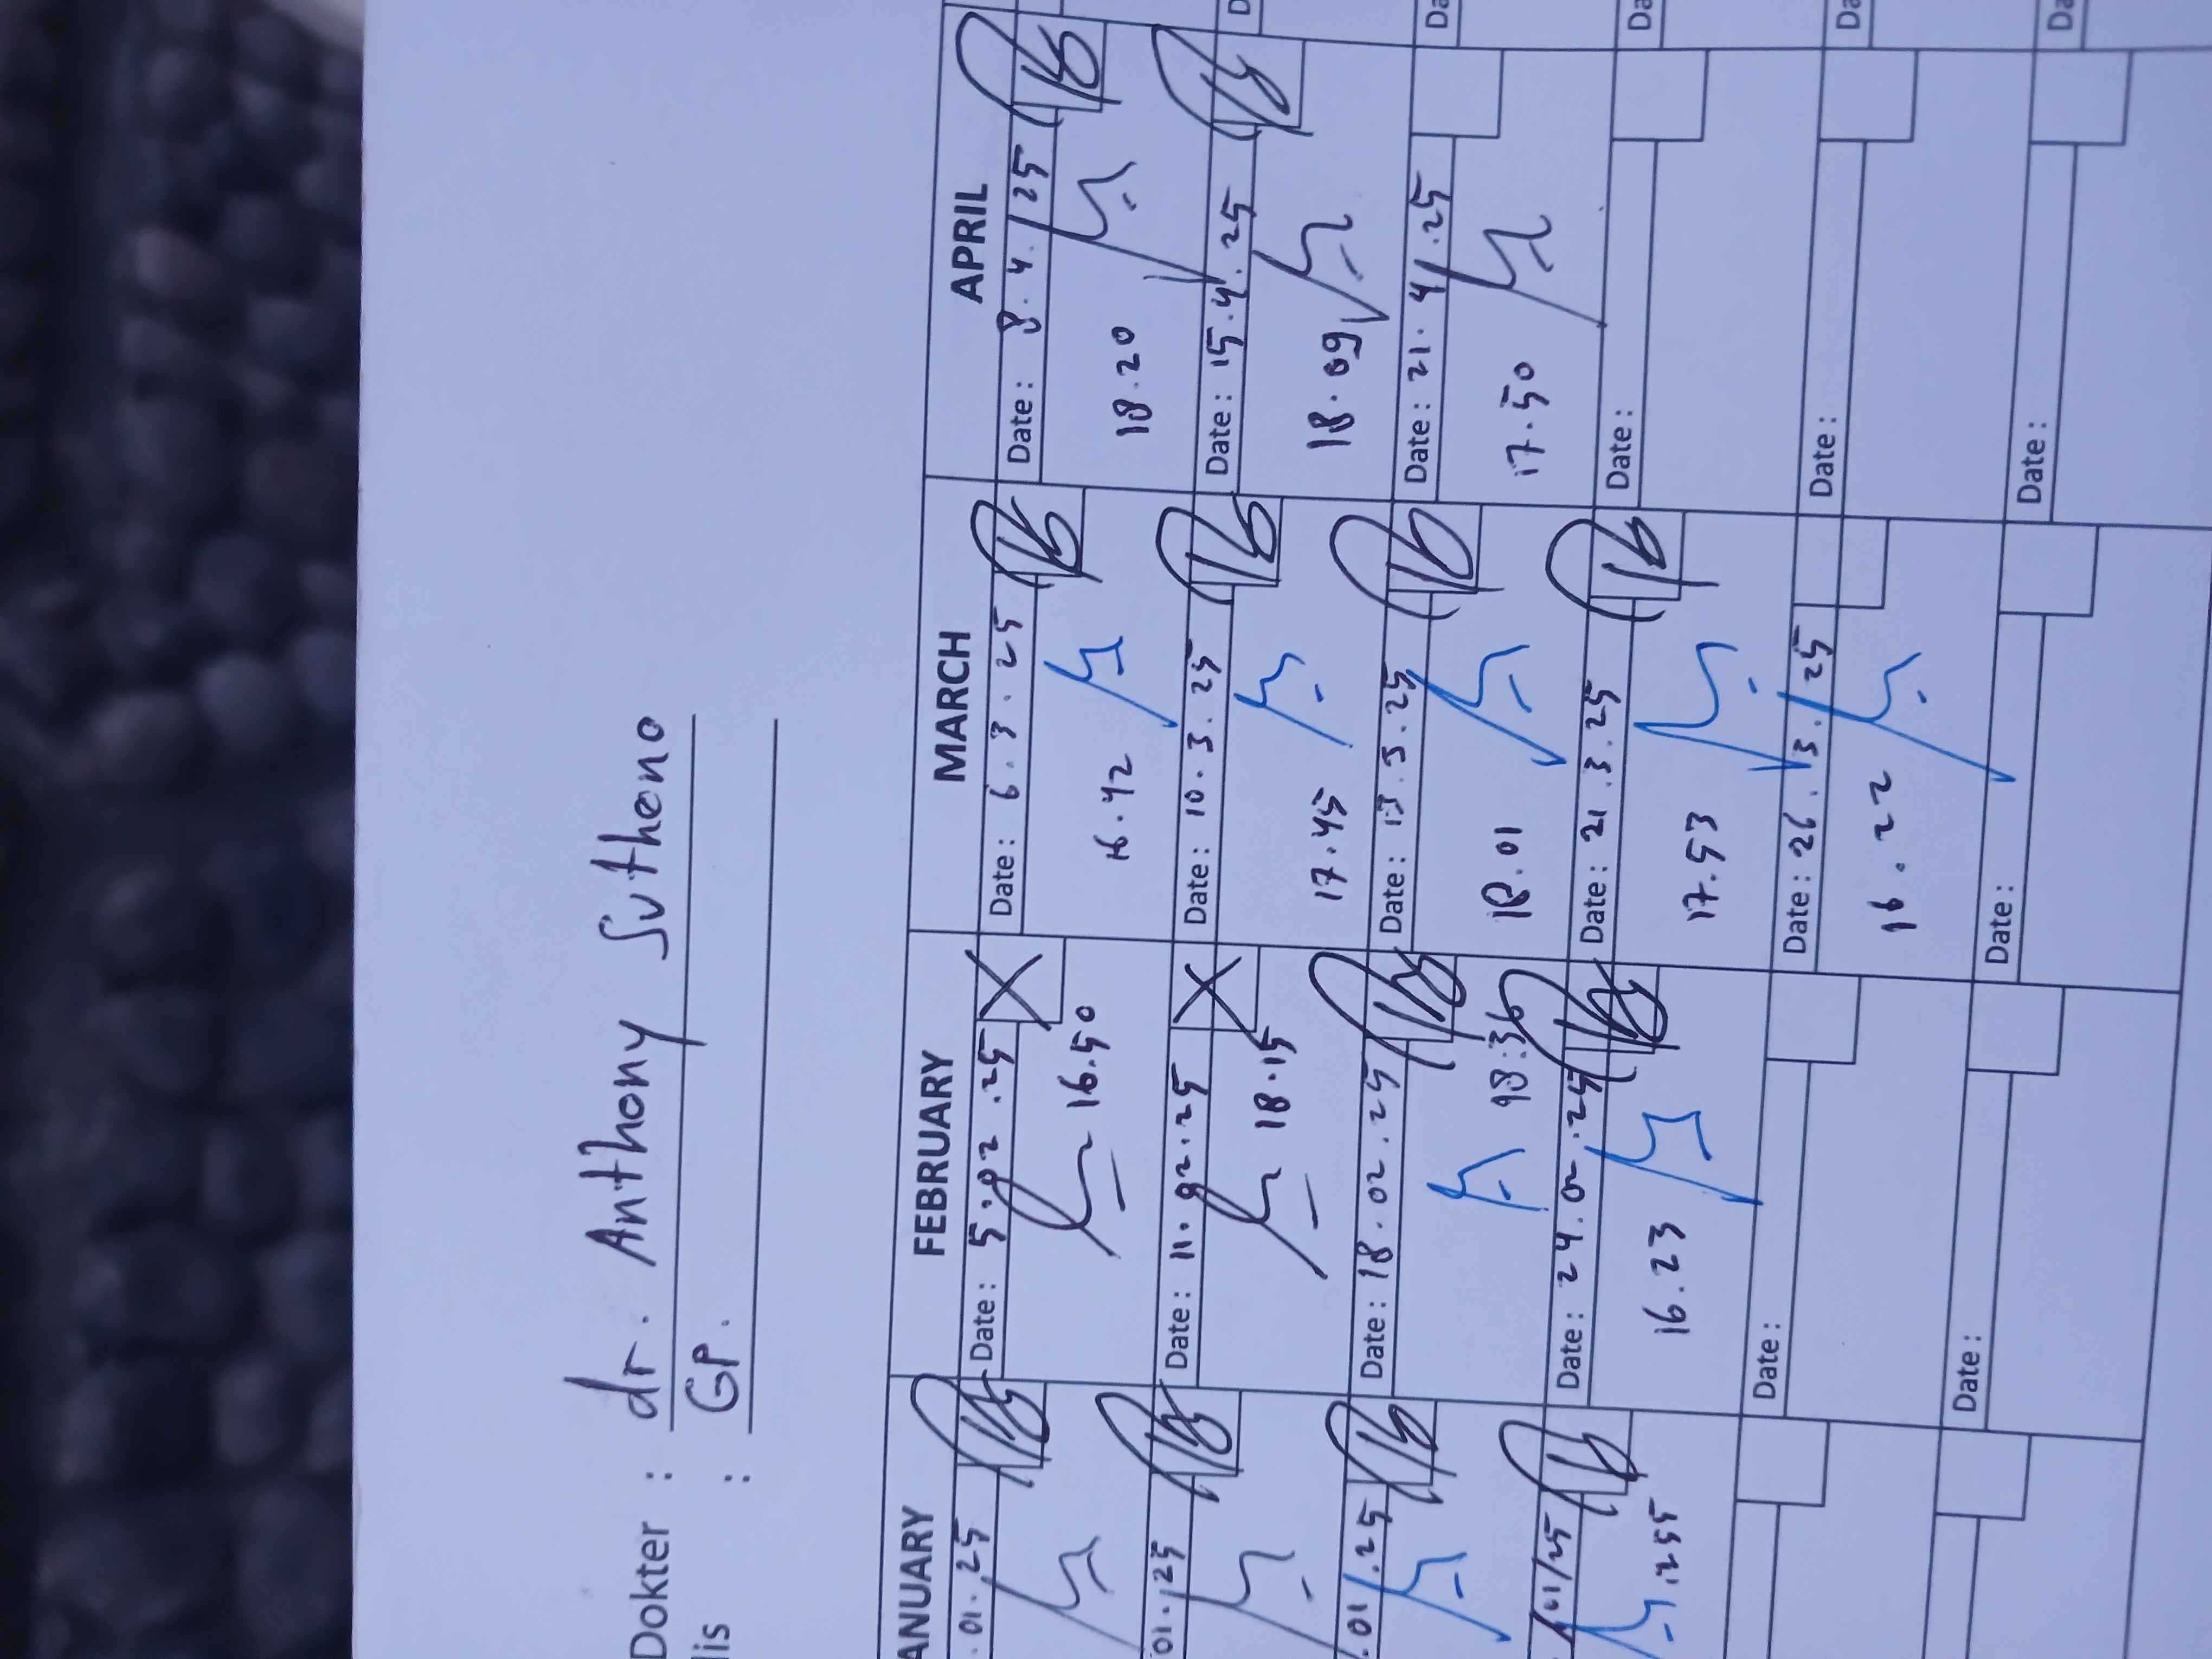 Dokter : dr. Anthony Sutheno
lis : GP.
ANUARY FEBRUARY MARCH APRIL
.01.25 Date: 5.02.25 Date: 6.3.25 Date: 8.4.25
16.50 16.42 18.20
01.25 Date: 11.02.25 Date: 10.3.25 Date: 15.4.25
18.15 17.45 18.09
.01.25 Date: 18.02.25 Date: 13.3.25 Date: 21.4.25
18:36 18.01 17.50
01/25 Date: 24.02.25 Date: 21.3.25 Date:
16.23 17.53
Date: Date: 26.3.25 Date:
16.22
Date: Date: Date: